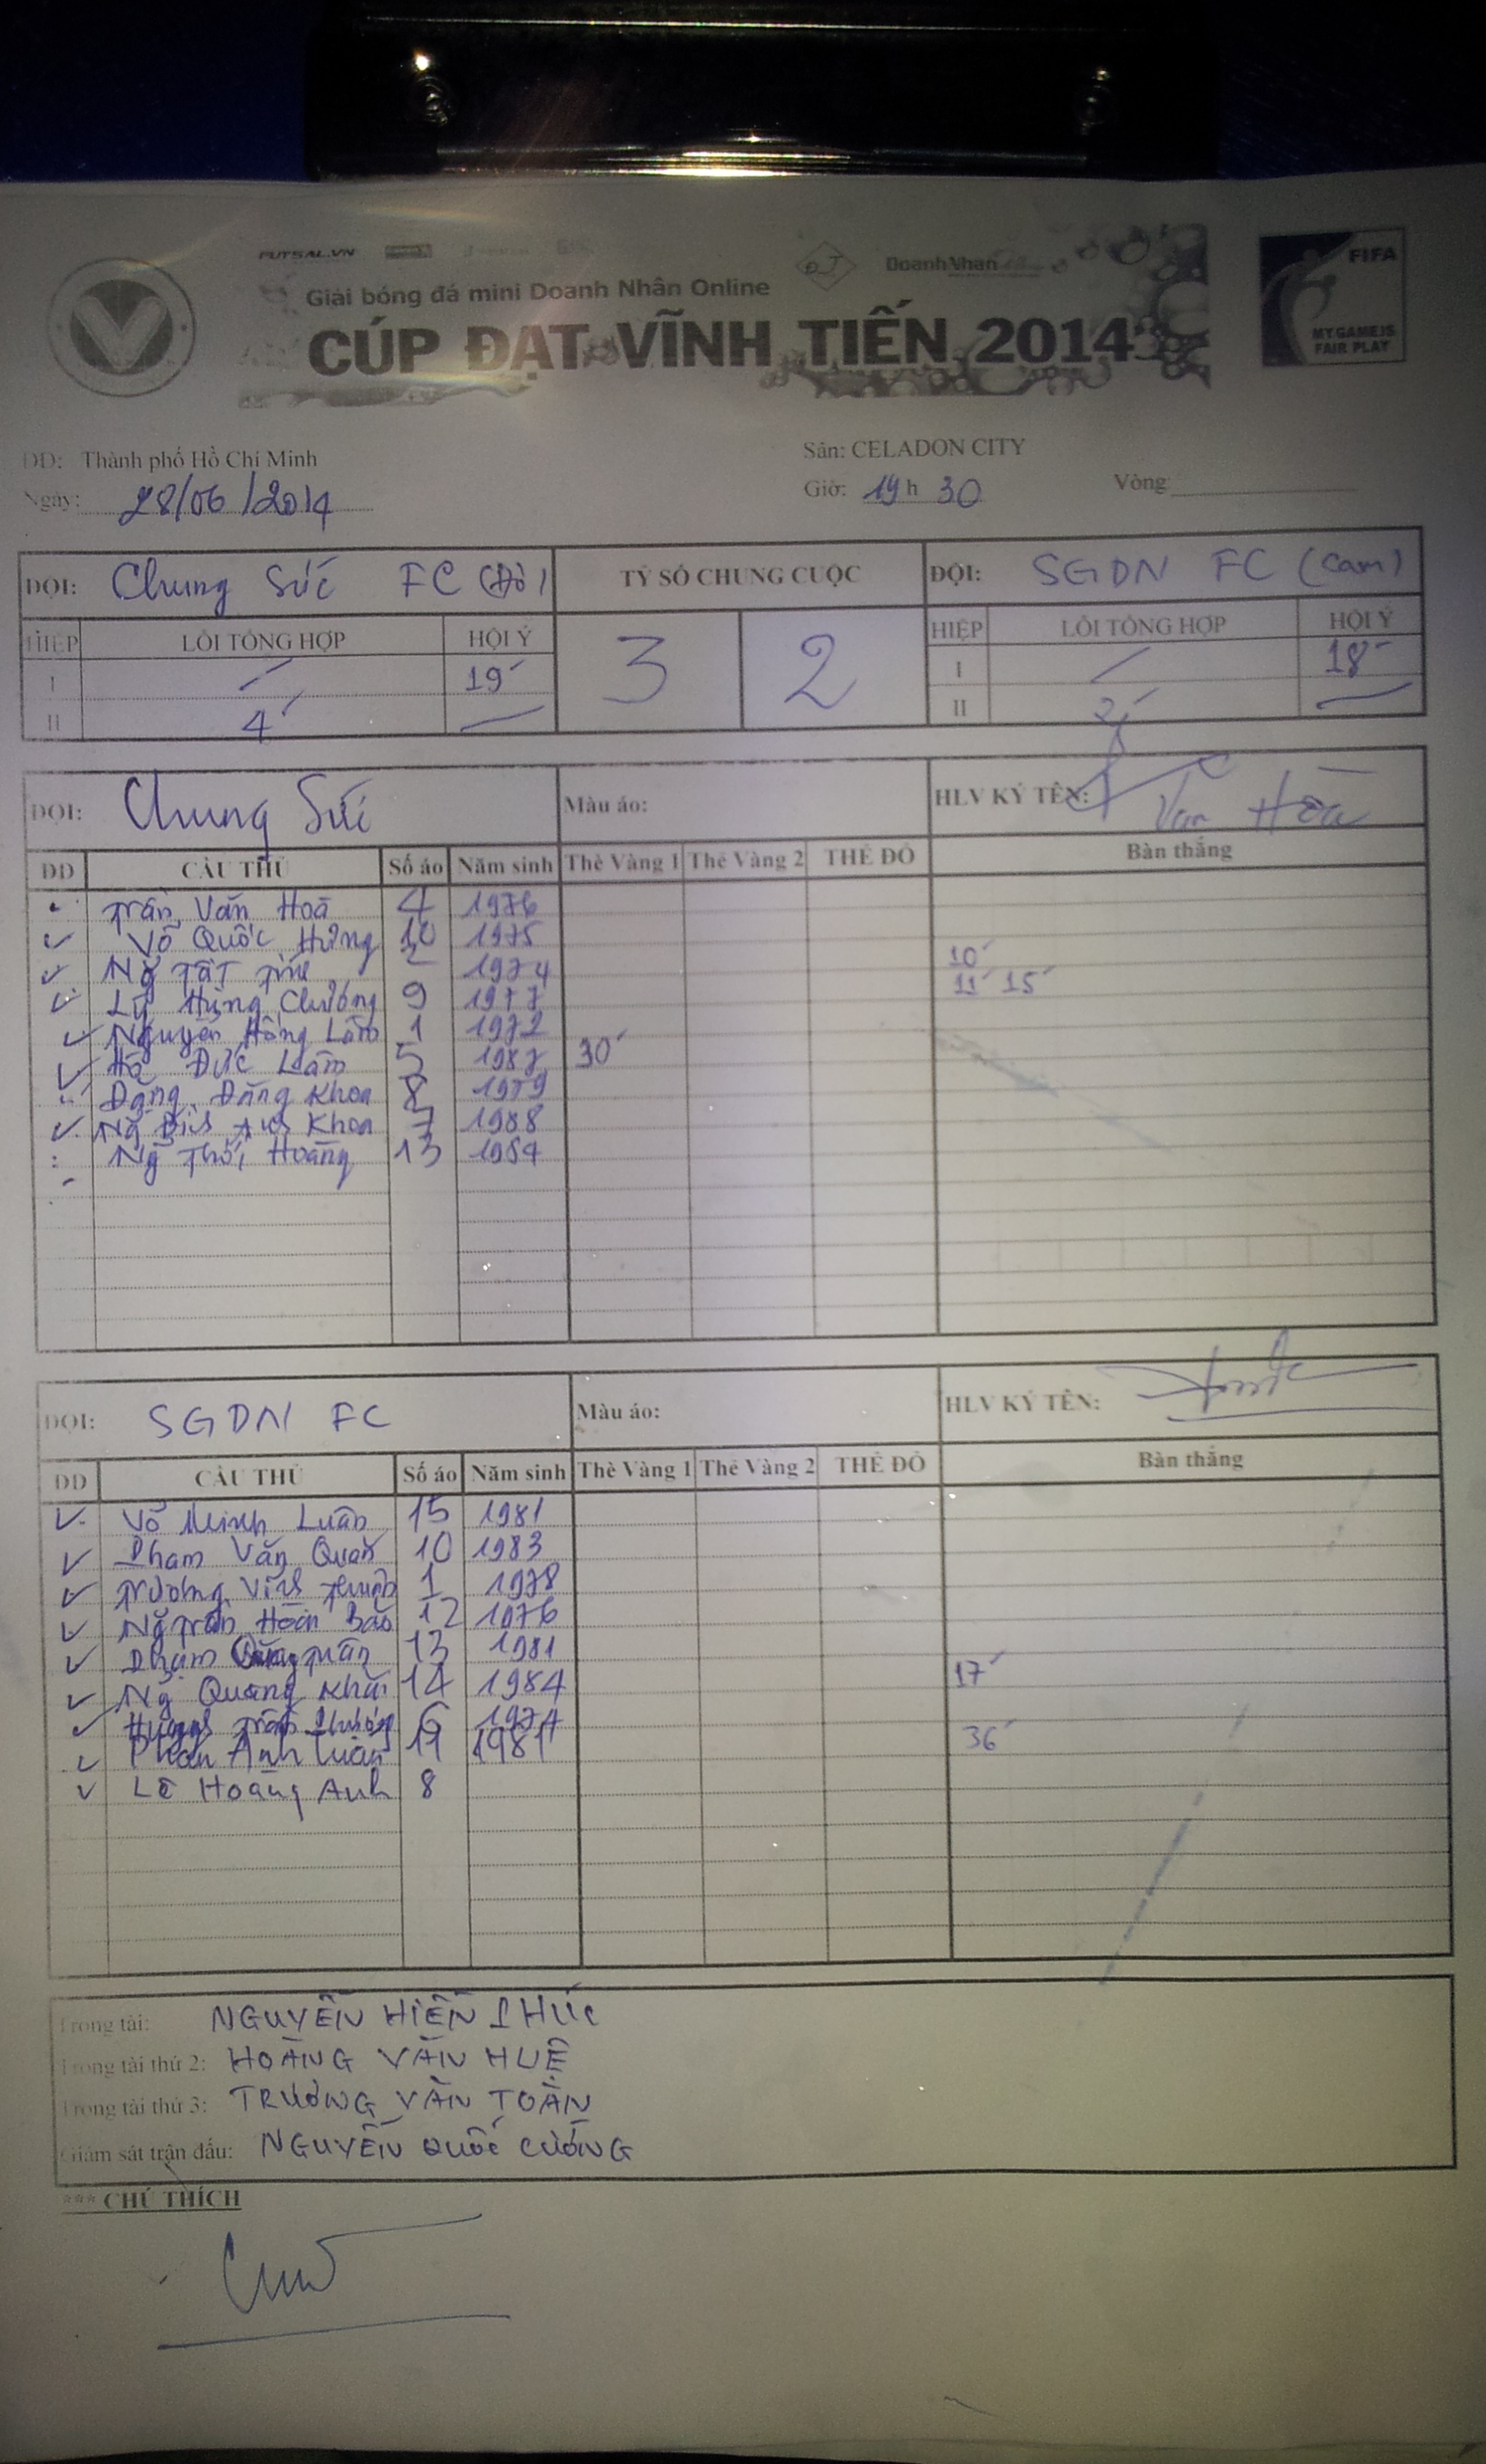 FUTSAL.VN DoanhNhan
Giải bóng đá mini Doanh Nhân Online
CÚP ĐẠT VĨNH TIẾN 2014
FIFA
MY GAME IS
FAIR PLAY
DD: Thành phố Hồ Chí Minh Sân: CELADON CITY
Ngày: 28/06/2014 Giờ: 19h 30 Vòng
ĐỘI: Chung Sức FC (Đỏ) TỶ SỐ CHUNG CUỘC ĐỘI: SGDN FC (Cam)
HIỆP LỖI TỔNG HỢP HỘI Ý 3 2 HIỆP LỖI TỔNG HỢP HỘI Ý
I / 19' I / 18'
II 4' — II 2' —
ĐỘI: Chung Sức Màu áo: HLV KÝ TÊN: Văn Hòa
DD CẦU THỦ Số áo Năm sinh Thẻ Vàng 1 Thẻ Vàng 2 THẺ ĐỎ Bàn thắng
Trần Văn Hoà 4 1976
✓ Võ Quốc Hưng 10 1975
✓ Ng Tất 2 1974 10'
✓ Lý Hùng Chương 9 1977 11' 15'
✓ Nguyễn Hồng Lâm 1 1972
✓ Hà Đức Lâm 5 1987 30'
Đặng Đăng Khoa 8 1979
✓ Ng Khoa 7 1988
Ng Thới Hoàng 13 1984
ĐỘI: SGDN FC Màu áo: HLV KÝ TÊN:
DD CẦU THỦ Số áo Năm sinh Thẻ Vàng 1 Thẻ Vàng 2 THẺ ĐỎ Bàn thắng
✓ Võ Minh Luân 15 1981
✓ Phạm Văn Quân 10 1983
✓ Trương Vĩnh Thuận 1 1978
✓ Ng Trần Hoàn Bảo 12 1976
✓ Phạm Tuấn 13 1981
✓ Ng Quang Khải 14 1984 17'
✓ Trần 6 1974
✓ Phan Anh Tuấn 11 1981 36'
✓ Lê Hoàng Anh 8
Trọng tài: NGUYỄN HIỀN PHÚC
Trọng tài thứ 2: HOÀNG VĂN HUỆ
Trọng tài thứ 3: TRƯƠNG VĂN TOÀN
Giám sát trận đấu: NGUYỄN QUỐC CƯỜNG
*** CHÚ THÍCH